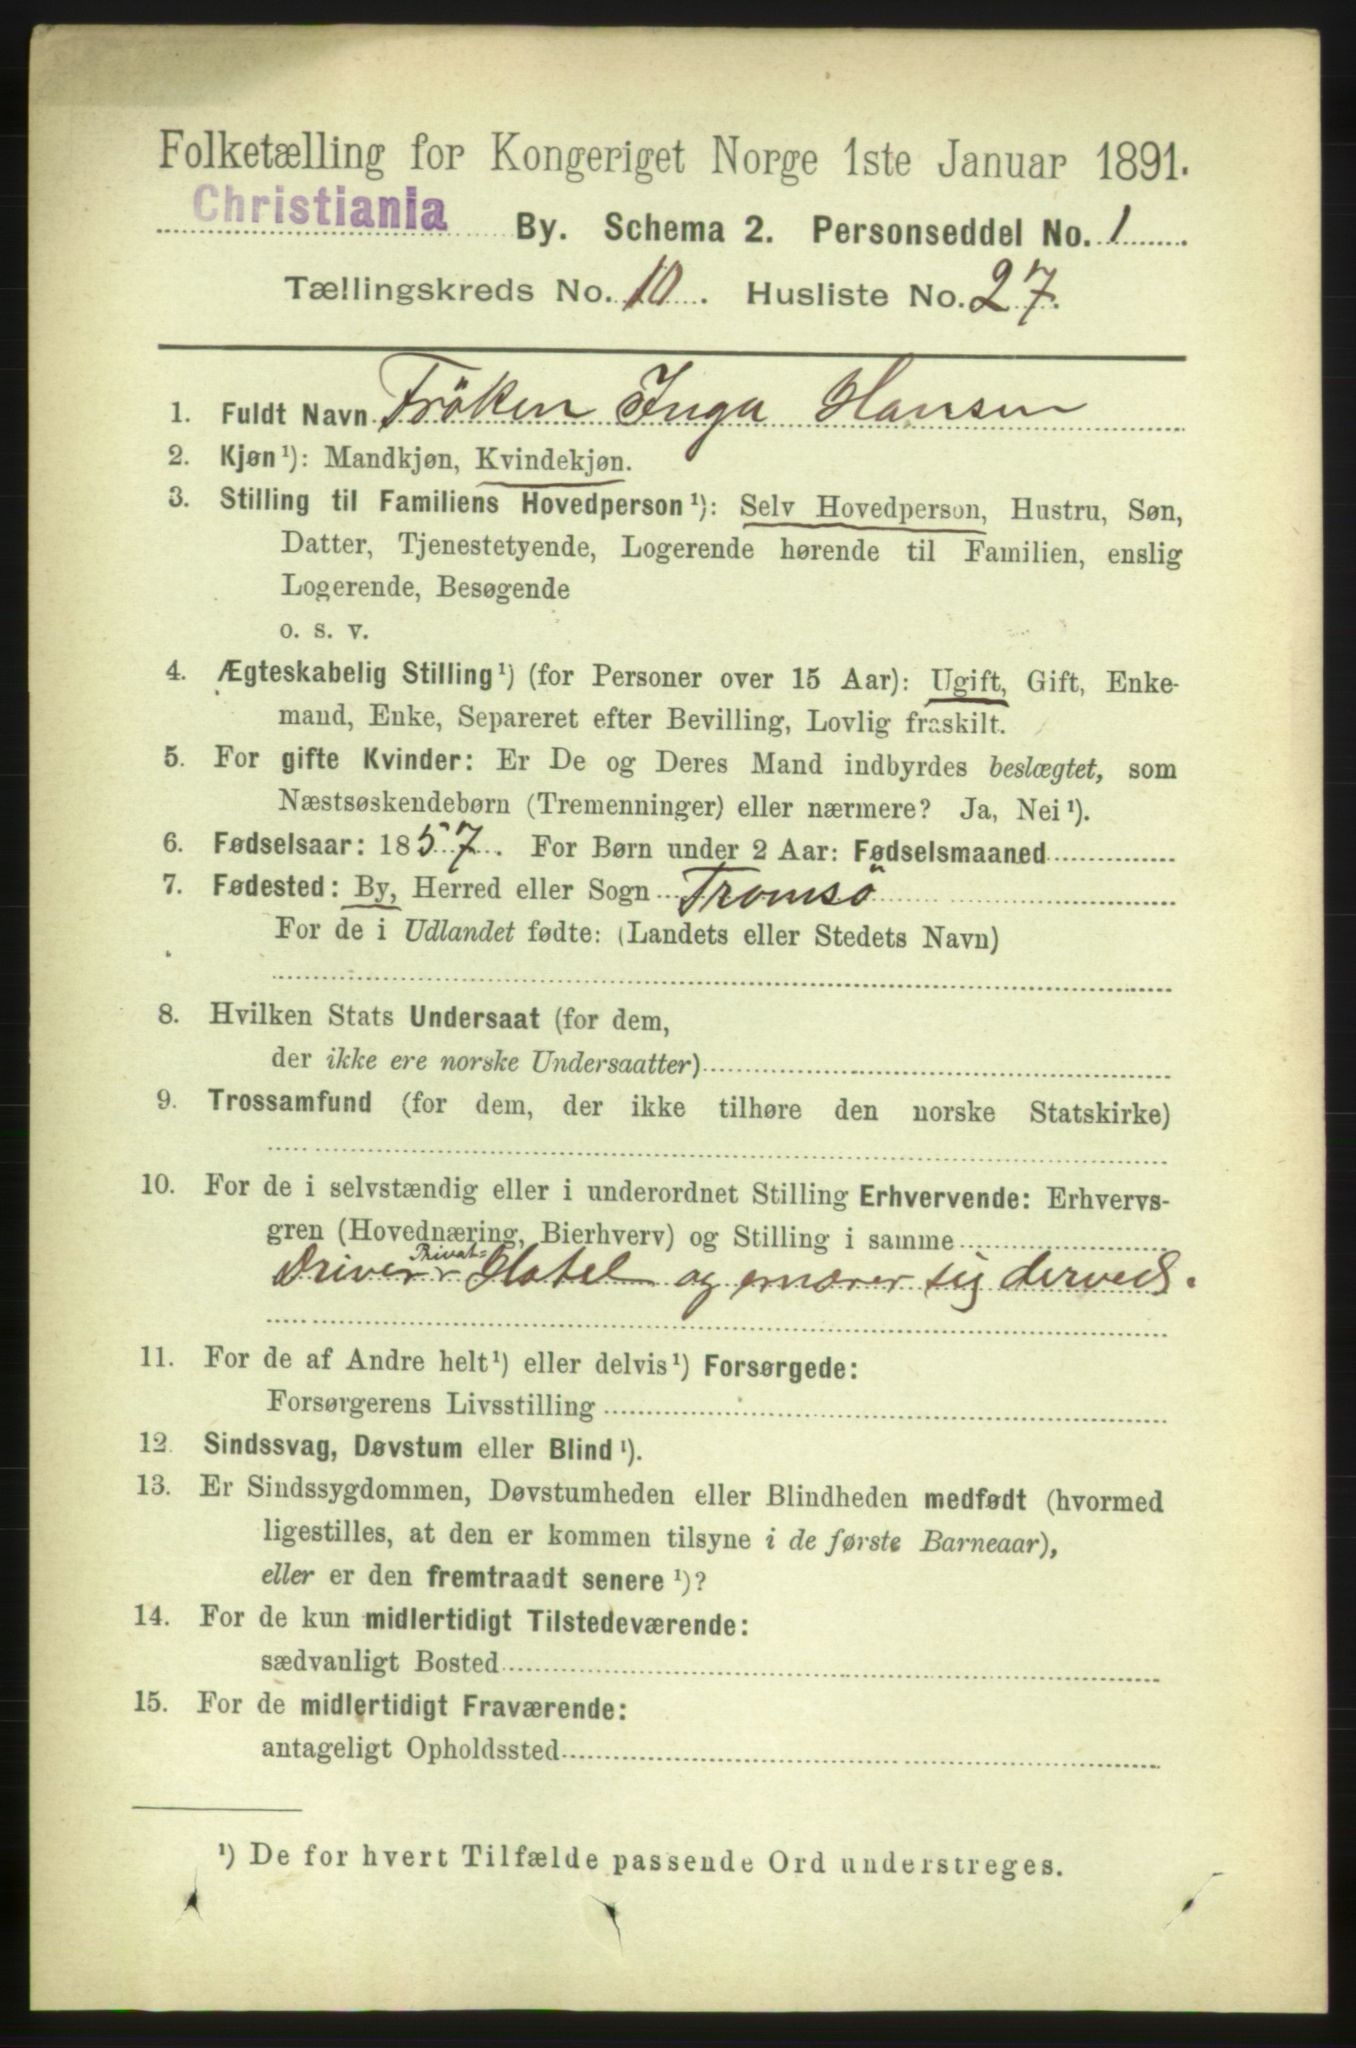 Folketælling for Kongeriget Norge 1ste Januar 1891.
Christiania By. Schema 2. Personseddel No. 1
Tællingskreds No. 10. Husliste No. 27.
1. Fuldt Navn Fröken Inga Hansen
2. Kjøn¹): Mandkjøn, Kvindekjøn.
3. Stilling til Familiens Hovedperson¹): Selv Hovedperson, Hustru, Søn,
Datter, Tjenestetyende, Logerende hørende til Familien, enslig
Logerende, Besøgende
o. s. v.
4. Ægteskabelig Stilling¹) (for Personer over 15 Aar): Ugift, Gift, Enke-
mand, Enke, Separeret efter Bevilling, Lovlig fraskilt.
5. For gifte Kvinder: Er De og Deres Mand indbyrdes beslægtet, som
Næstsøskendebørn (Tremenninger) eller nærmere? Ja, Nei¹).
6. Fødselsaar: 1857. For Børn under 2 Aar: Fødselsmaaned
7. Fødested: By, Herred eller Sogn Tromsö
For de i Udlandet fødte: (Landets eller Stedets Navn)
8. Hvilken Stats Undersaat (for dem,
der ikke ere norske Undersaatter)
9. Trossamfund (for dem, der ikke tilhøre den norske Statskirke)
10. For de i selvstændig eller i underordnet Stilling Erhvervende: Erhvervs-
gren (Hovednæring, Bierhverv) og Stilling i samme
Driver Privat= Hotel og ernærer sig derved.
11. For de af Andre helt¹) eller delvis¹) Forsørgede:
Forsørgerens Livsstilling
12. Sindssvag, Døvstum eller Blind¹).
13. Er Sindssygdommen, Døvstumheden eller Blindheden medfødt (hvormed
ligestilles, at den er kommen tilsyne i de første Barneaar),
eller er den fremtraadt senere¹)?
14. For de kun midlertidigt Tilstedeværende:
sædvanligt Bosted
15. For de midlertidigt Fraværende:
antageligt Opholdssted
¹) De for hvert Tilfælde passende Ord understreges.